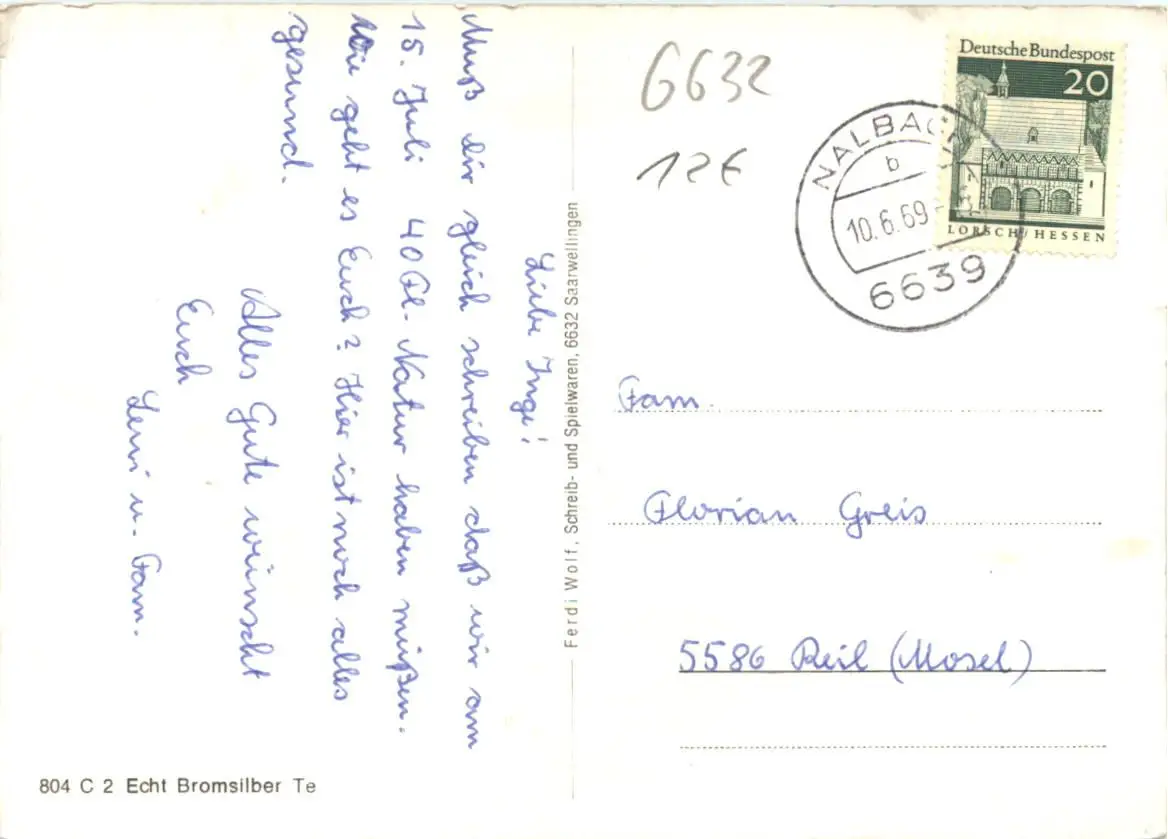 Liebe Inge!
Muß dir gleich schreiben daß wir am
15. Juli 40 Fl. Natur haben müßen.
Wie geht es Euch? Hier ist noch alles
gesund.
Alles Gute wünscht
Euch
Leni u. Fam.
804 C 2 Echt Bromsilber Te
Ferdi Wolf, Schreib- und Spielwaren, 6632 Saarwellingen
6632
12€
Deutsche Bundespost
20
LORSCH/HESSEN
NALBACH
b
10.6.69
6639
Fam.
Florian Greis
5586 Reil (Mosel)